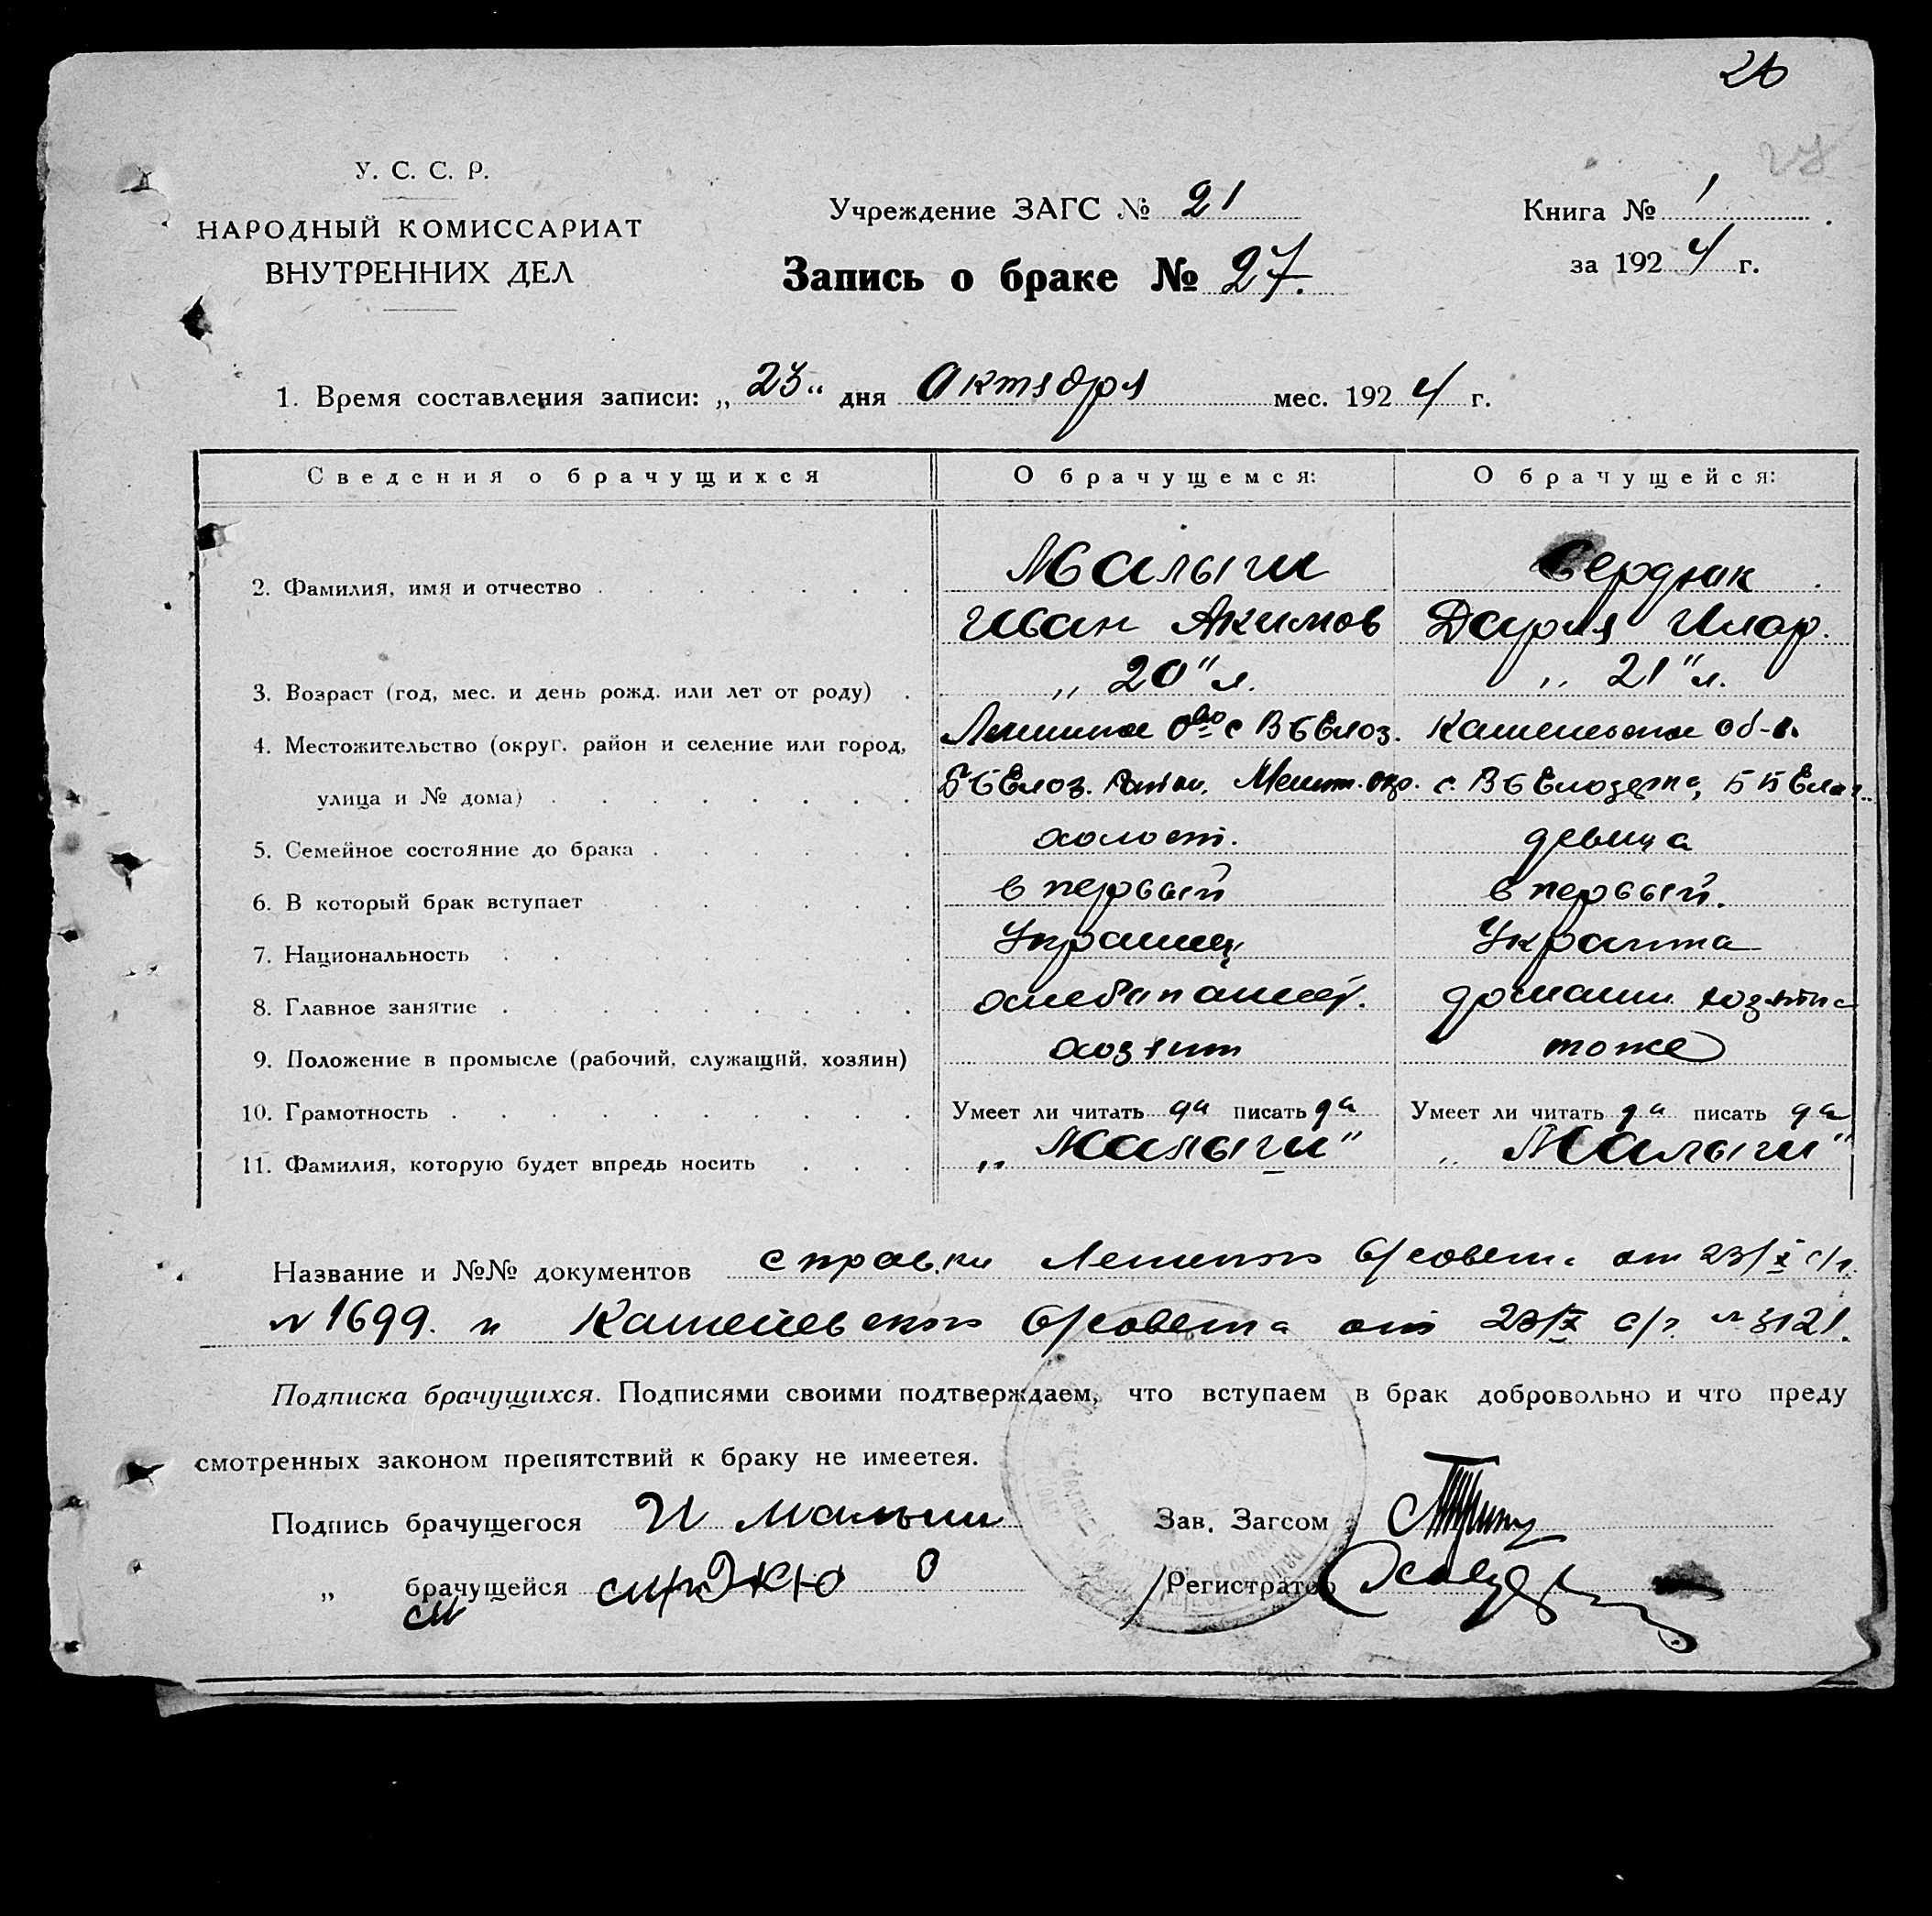 26
27
У. С. С. Р.
НАРОДНЫЙ КОМИССАРИАТ
ВНУТРЕННИХ ДЕЛ
Учреждение ЗАГС № 21
Запись о браке № 27.
Книга № 1
за 1924 г.
1. Время составления записи: „23“ дня Октября мес. 1924 г.
Сведения о брачущихся О брачущемся: О брачущейся:
2. Фамилия, имя и отчество Малыш Сердюк
Иван Акимов Дарья Илар.
3. Возраст (год, мес. и день рожд. или лет от роду) „20“ л. „21“ л.
4. Местожительство (округ, район и селение или город, с. В Б Елоз. об-в.
улица и № дома) Б Б Елоз. Мелит. окр. с. В Б Елозерка, Б Б Елоз.
5. Семейное состояние до брака холост. девица
6. В который брак вступает в первый в первый.
7. Национальность Украинец Украинка
8. Главное занятие хлебопашец. домашн. хозяйка
9. Положение в промысле (рабочий, служащий, хозяин) хозяин тоже
10. Грамотность Умеет ли читать да писать да Умеет ли читать да писать да
11. Фамилия, которую будет впредь носить „Малыш“ „Малыш“
Название и №№ документов справки С/совета от 23/X с/г.
№ 1699. и С/совета от 23/X с/г. № 3121.
Подписка брачущихся. Подписями своими подтверждаем, что вступаем в брак добровольно и что преду
смотренных законом препятствий к браку не имеетея.
Подпись брачущегося И Малыш Зав. Загсом
„ брачущейся Регистратор